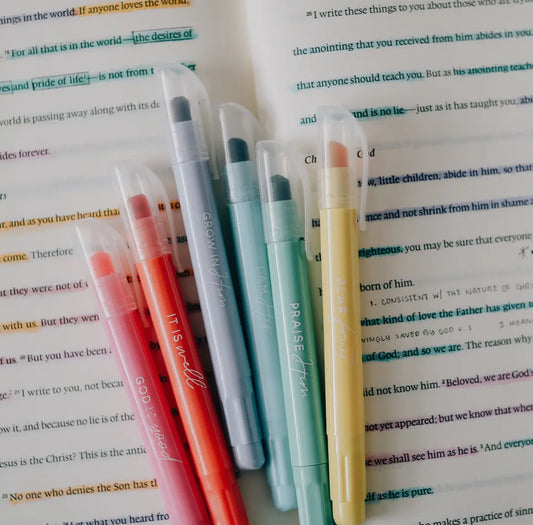 ings in the world. If anyone loves the world,
16 For all that is in the world—the desires of
yes and pride of life—is not from t
world is passing away along with its de
ides forever.
ts
ar, and as you have heard tha
come. Therefore
t they were not of
with us. But they were
f us. 20 But you have been
ge. 21 I write to you, not becau
ow it, and because no lie is of the
esus is the Christ? This is the antic
23 No one who denies the Son has th
Let what you heard from
26 I write these things to you about those who are tryi
the anointing that you received from him abides in you,
that anyone should teach you. But as his anointing teache
and is no lie—just as it has taught you, abi
God
ow, little children, abide in him, so that
ence and not shrink from him in shame a
righteous, you may be sure that everyone
born of him.
1. CONSISTENT W/ THE NATURE OF
what kind of love the Father has given to
INGLY SAVED BY GOD V. 1
of God; and so we are. The reason why
did not know him. 2 Beloved, we are God's
not yet appeared; but we know that when
we shall see him as he is. 3 And everyone
elf as he is pure.
ne who makes a practice of sinn
GOD is good
IT IS well
GROW IN Him
PRAISE Him